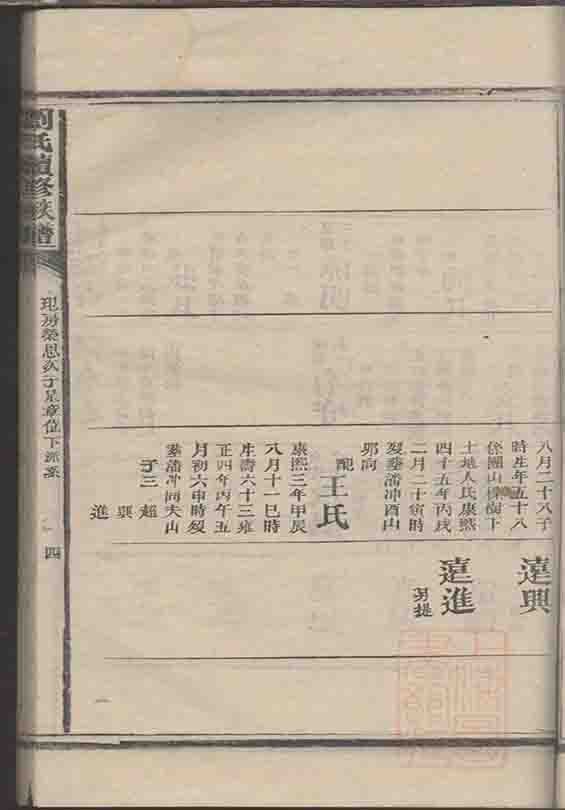 八月二十八子
時生年五十八
係團山樟樹下
土地人氏康熙
四十五年丙戌
二月二十寅時
歿墓潘冲酉山
卯向
配王氏
康熙三年甲辰
八月十一巳時
生壽六十三雍
正四年丙午五
月初六申時歿
墓潘冲同夫山
子三超
興
進
遠興
遠進
另提
劉氏續修族譜
玘房榮恩公子星章位下派系
四